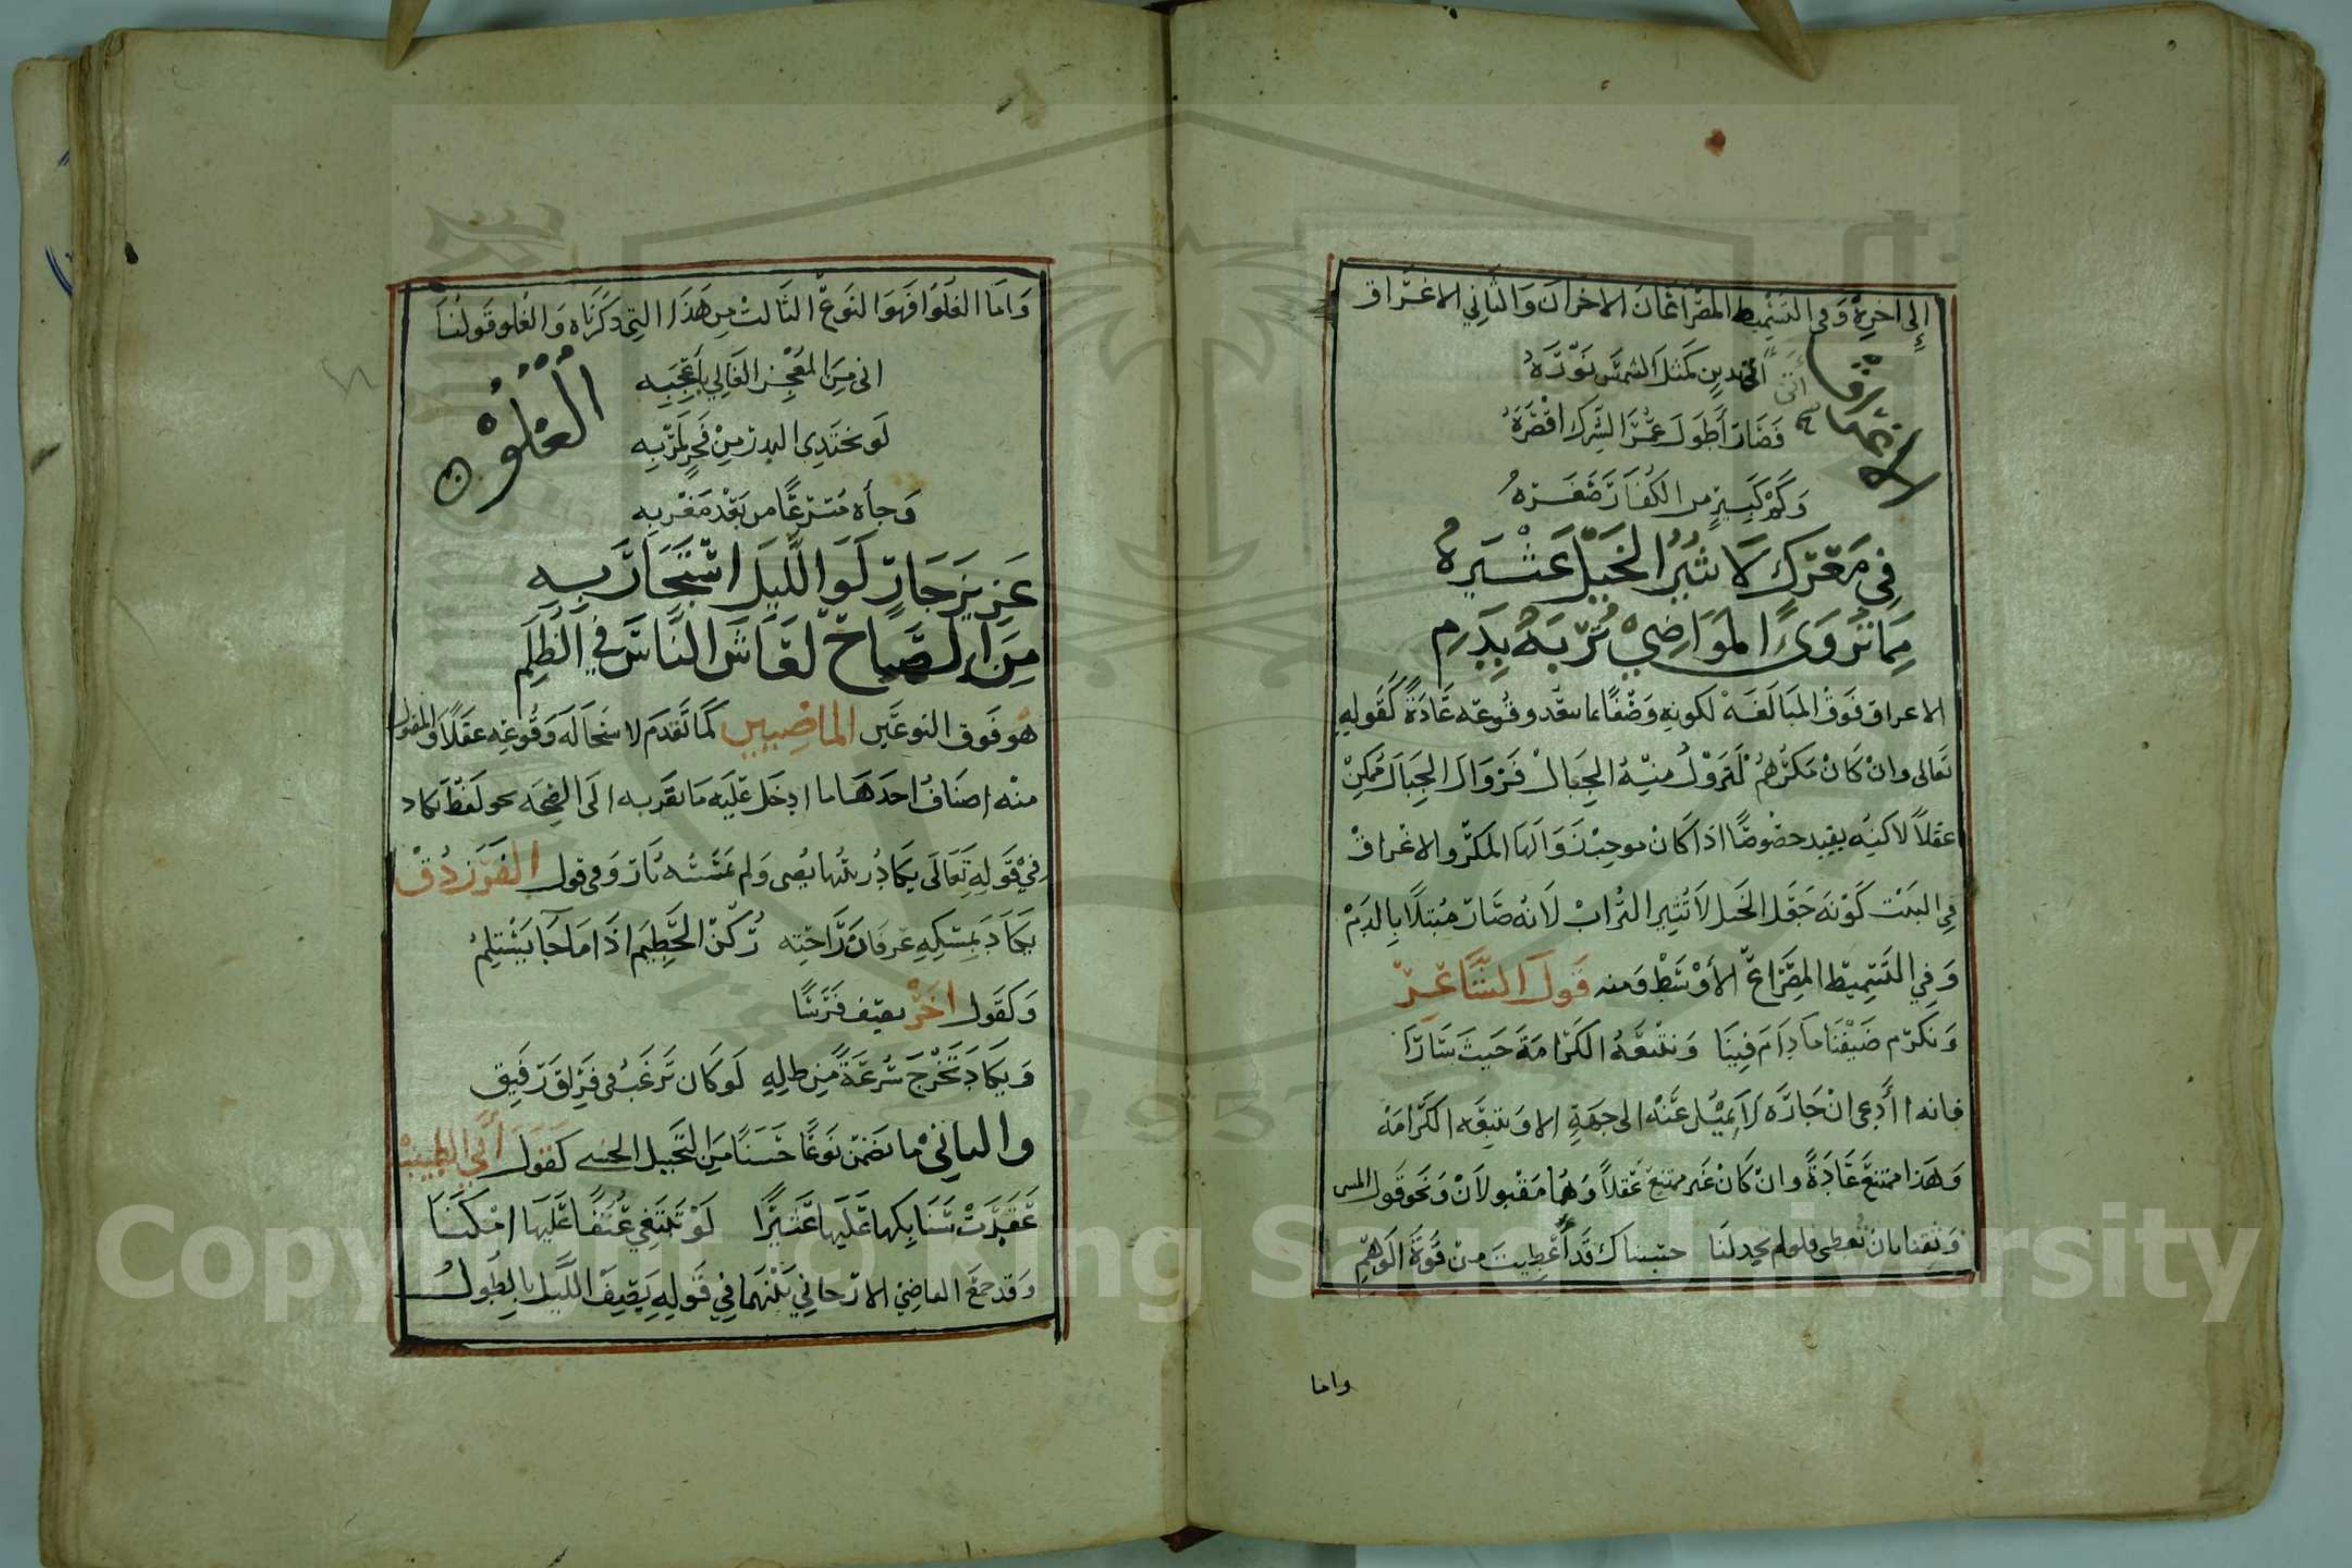 إلى اخره وفي التسميط المصراعان الاخران والثاني الاغراق
الاغراق
أتى بدين كمثل الشمس نوره
فصار أطول عمر الشرك اقصره
وكم كبير من الكفار صغره
في معرك لا تثير الخيل عثيره
مما تروى المواضي تربه بدم
الاغراق فوق المبالغه لكونه وصفا بما يبعد وقوعه عادة كقوله
تعالى وان كان مكرهم لتزول منه الجبال فزوال الجبال ممكن
عقلاً لاكنه بعيد خصوصًا اذا كان موجب زوالها المكر والاغراق
في البيت كونه جعل الخيل لا تثير التراب لانه صار مبتلا بالدم
وفي التسميط المصراع الأوسط ومنه قول الشاعر
ونكرم ضيفنا مادام فينا ونتبعه الكرامة حيث سارا
فانه أادعى ان جاره لا يميل عنه الى جهة الا ويتبعه الكرامه
وهذا ممتنع عادة وان كان غير ممتنع عقلاً وهما مقبولان ونحو قول
وثقنا بان تعطي فلولم تجد لنا حسبناك قد أعطيت من قوة الوهم
واما
واما الغلوا فهو النوع الثالث من هذا التي ذكرناه والغلو قولنا
الغلو
اني من المعجز الغالي باعجبه
لو يختدي البدر من فجر لمر به
وجأه مسرعًا من بعد مغربه
عزيز جارٍ لو الليل استجار به
من الصباح لعاش الناس في الظلم
هو فوق النوعين الماضيين كما تقدم لاستحاله وقوعه عقلاً والمقبول
منه اصناف احدها ما ادخل عليه ما يقربه الى الصحه نحو لفظ يكاد
في قوله تعالى يكاد زيتها يضى ولم تمسسه نار وفي قول الفرزدق
يكاد يمسكه عرفان راحته ركن الحطيم اذا ما جا يستلم
وكقول اخر يصف فرسًا
ويكاد تخرج سرعة من ظله لو كان يرغب في فراق رفيق
والثاني ما تضمن نوعًا حسنًا من التخييل الحسي كقول أبي الطيب
عقدت سنابكها عليها عثيرًا لو تبتغي عنقا عليها امكنا
وقد جمع القاضي الارجاني بينهما في قوله يصف الليل بالطول
Copyright © King Saud University
1957